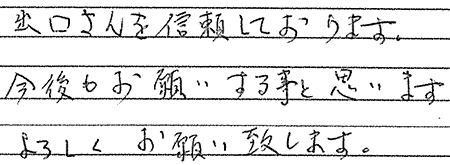 出口さんを信頼しております。
今後もお願いする事と思います
よろしくお願い致します。